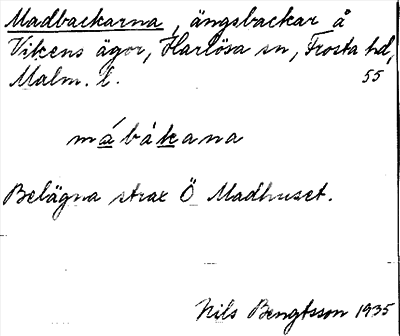 Madbackarna, ängsbackar å
Vikens ägor, Harlösa sn, Frosta hd,
Malm. l. 55
mábákana
Belägna strax Ö Madhuset.
Nils Bengtsson 1935